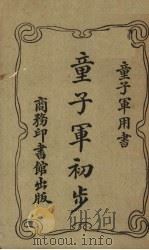 童子軍用書
童子軍初步
商務印書館出版